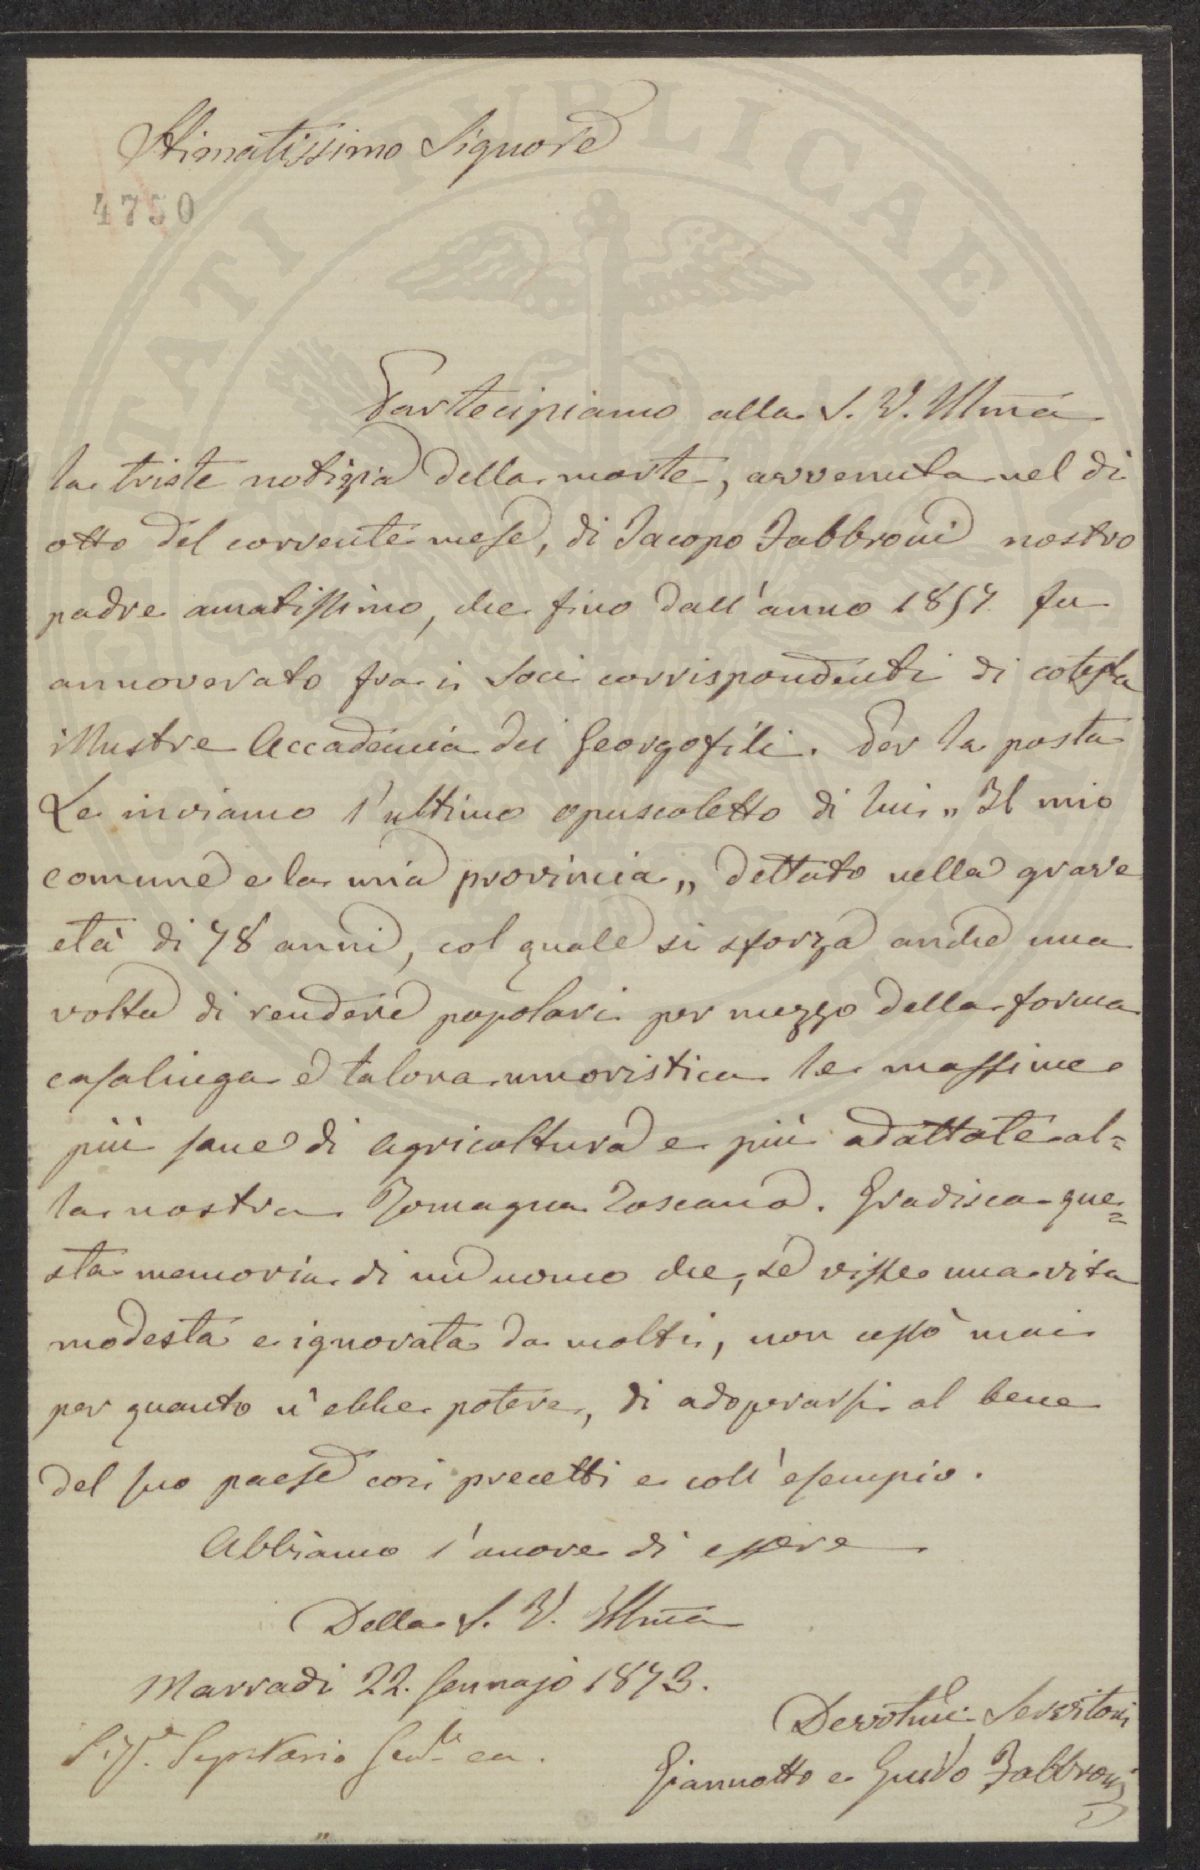 Stimatissimo Signore
4750
Partecipiamo alla S. V. Illma
la triste notizia della morte, avvenuta nel dì
otto del corrente mese, di Jacopo Fabbroni nostro
padre amatissimo, che fino dall'anno 1857 fu
annoverato fra i Soci corrispondenti di cotesta
illustre Accademia dei Georgofili. Per la posta
Le inviamo l'ultimo opuscoletto di lui „ Il mio
comune e la mia provincia „ dettato nella grave
età di 78 anni, col quale si sforza anche una
volta di rendere popolari per mezzo della forma
casalinga e talora umoristica le massime
più sane di agricoltura e più adattate al=
la nostra Romagna Toscana. Gradisca que=
sta memoria di un uomo che, se visse una vita
modesta e ignorata da molti, non cessò mai
per quanto n'ebbe potere, di adoperarsi al bene
del suo paese coi precetti e coll'esempio.
Abbiamo l'onore di essere
Della S. V. Illma
Marradi 22. Gennajo 1873.
Devotmi Servitori
Giannotto e Guido Fabbroni